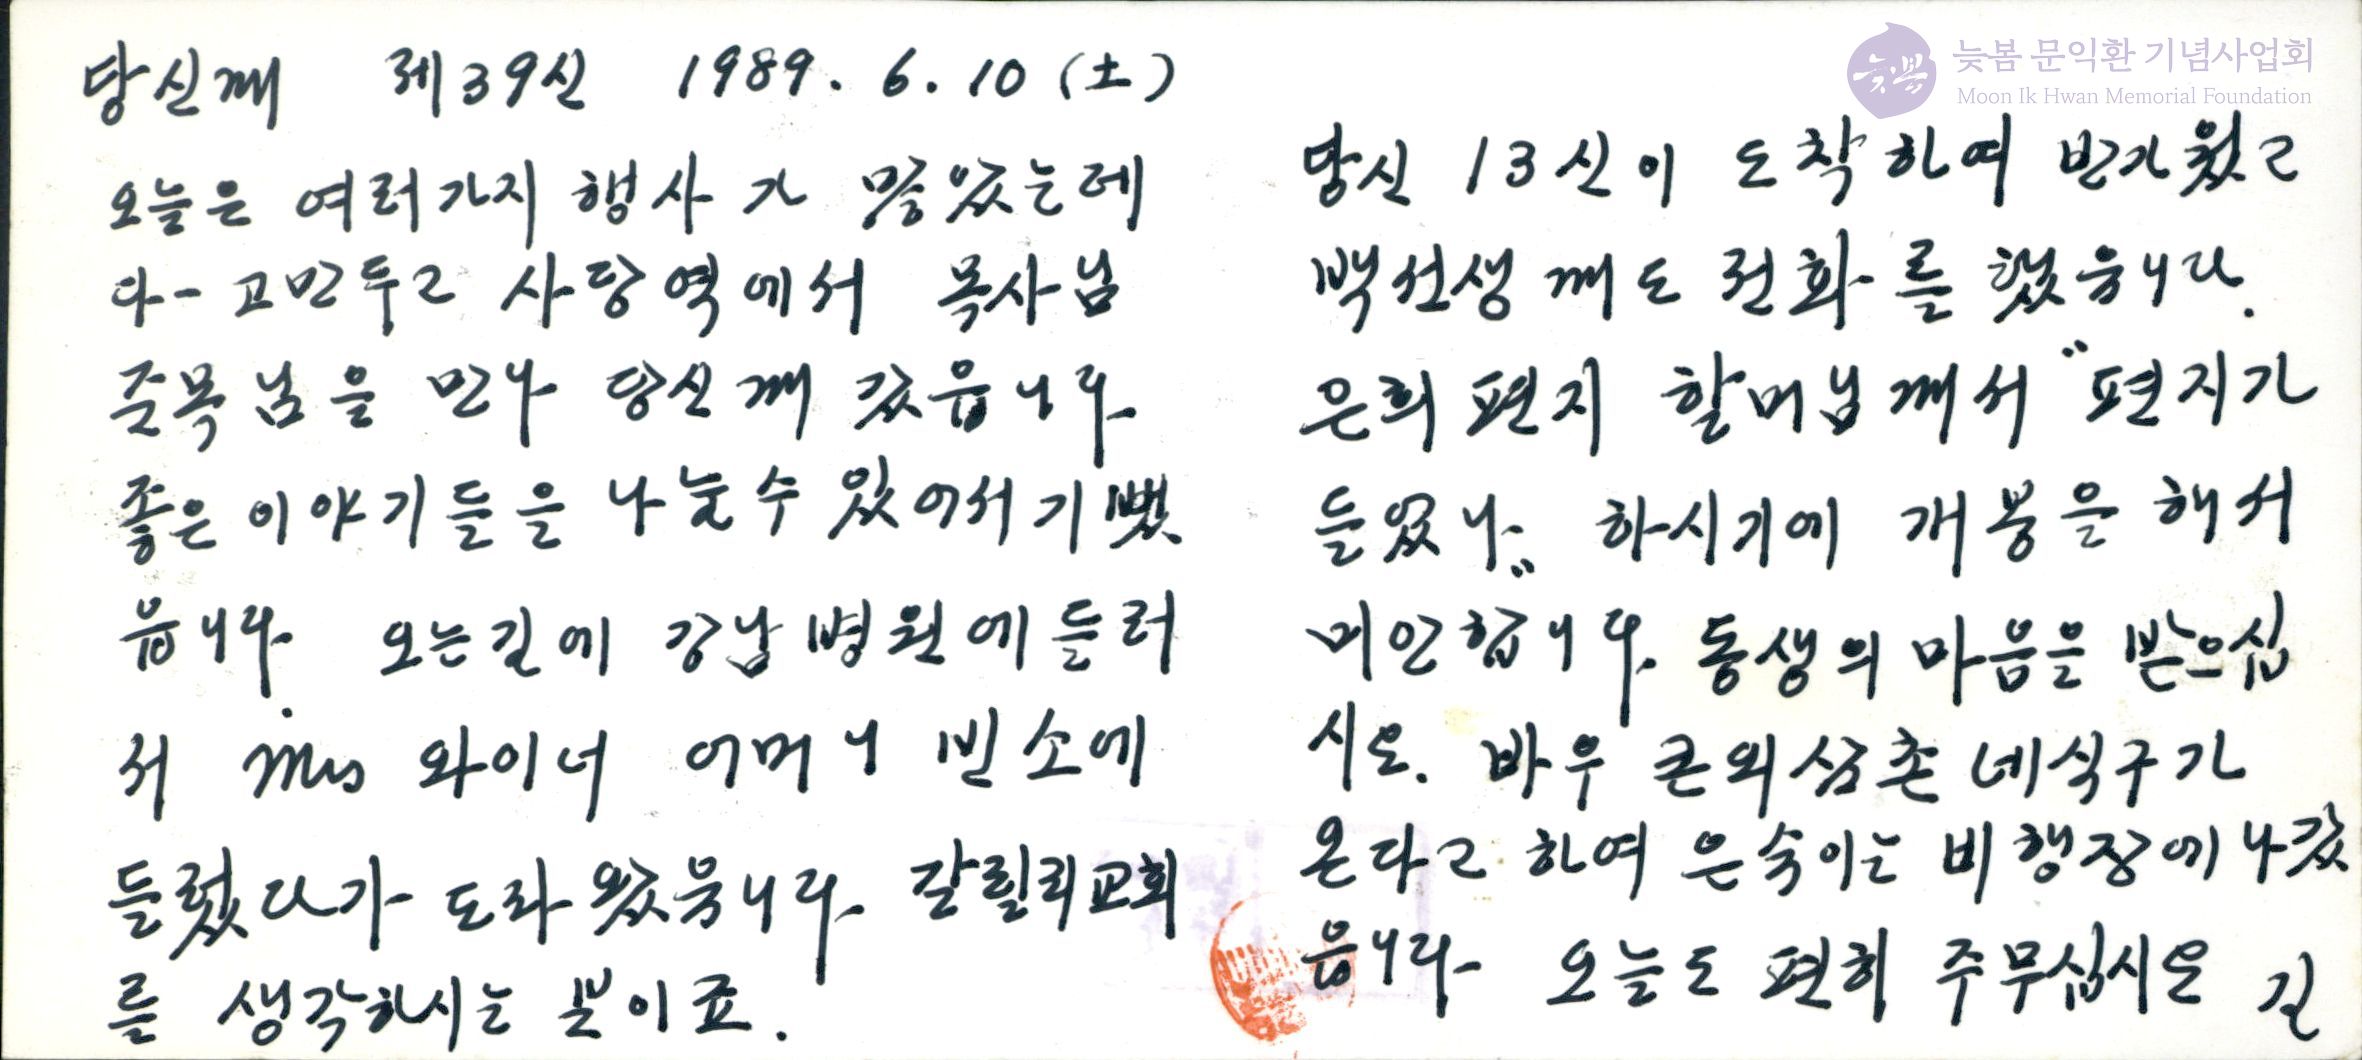 당신께 제39신 1989. 6. 10 (土)
오늘은 여러가지 행사가 많았는데
다- 고만두고 사당역에서 목사님
준목님을 만나 당신께 갔읍니다.
좋은 이야기들을 나눌 수 있어서 기뻤
읍니다. 오는길에 강남병원에 들러
서 Mrs 와이너 어머니 빈소에
들렀다가 도라왔읍니다. 갈릴리교회
를 생각하시는 분이죠.
늦봄 문익환 기념사업회
Moon Ik Hwan Memorial Foundation
늦봄
당신 13신이 도착하여 반가웠고
백선생께도 전화를 했읍니다.
은희 편지 할머님께서 "편지가
들었나" 하시기에 개봉을 해서
미안합니다. 동생의 마음을 받으십
시오. 바우 큰외삼촌 네식구가
온다고 하여 은숙이는 비행장에 나갔
읍니다. 오늘도 편히 주무십시오 길